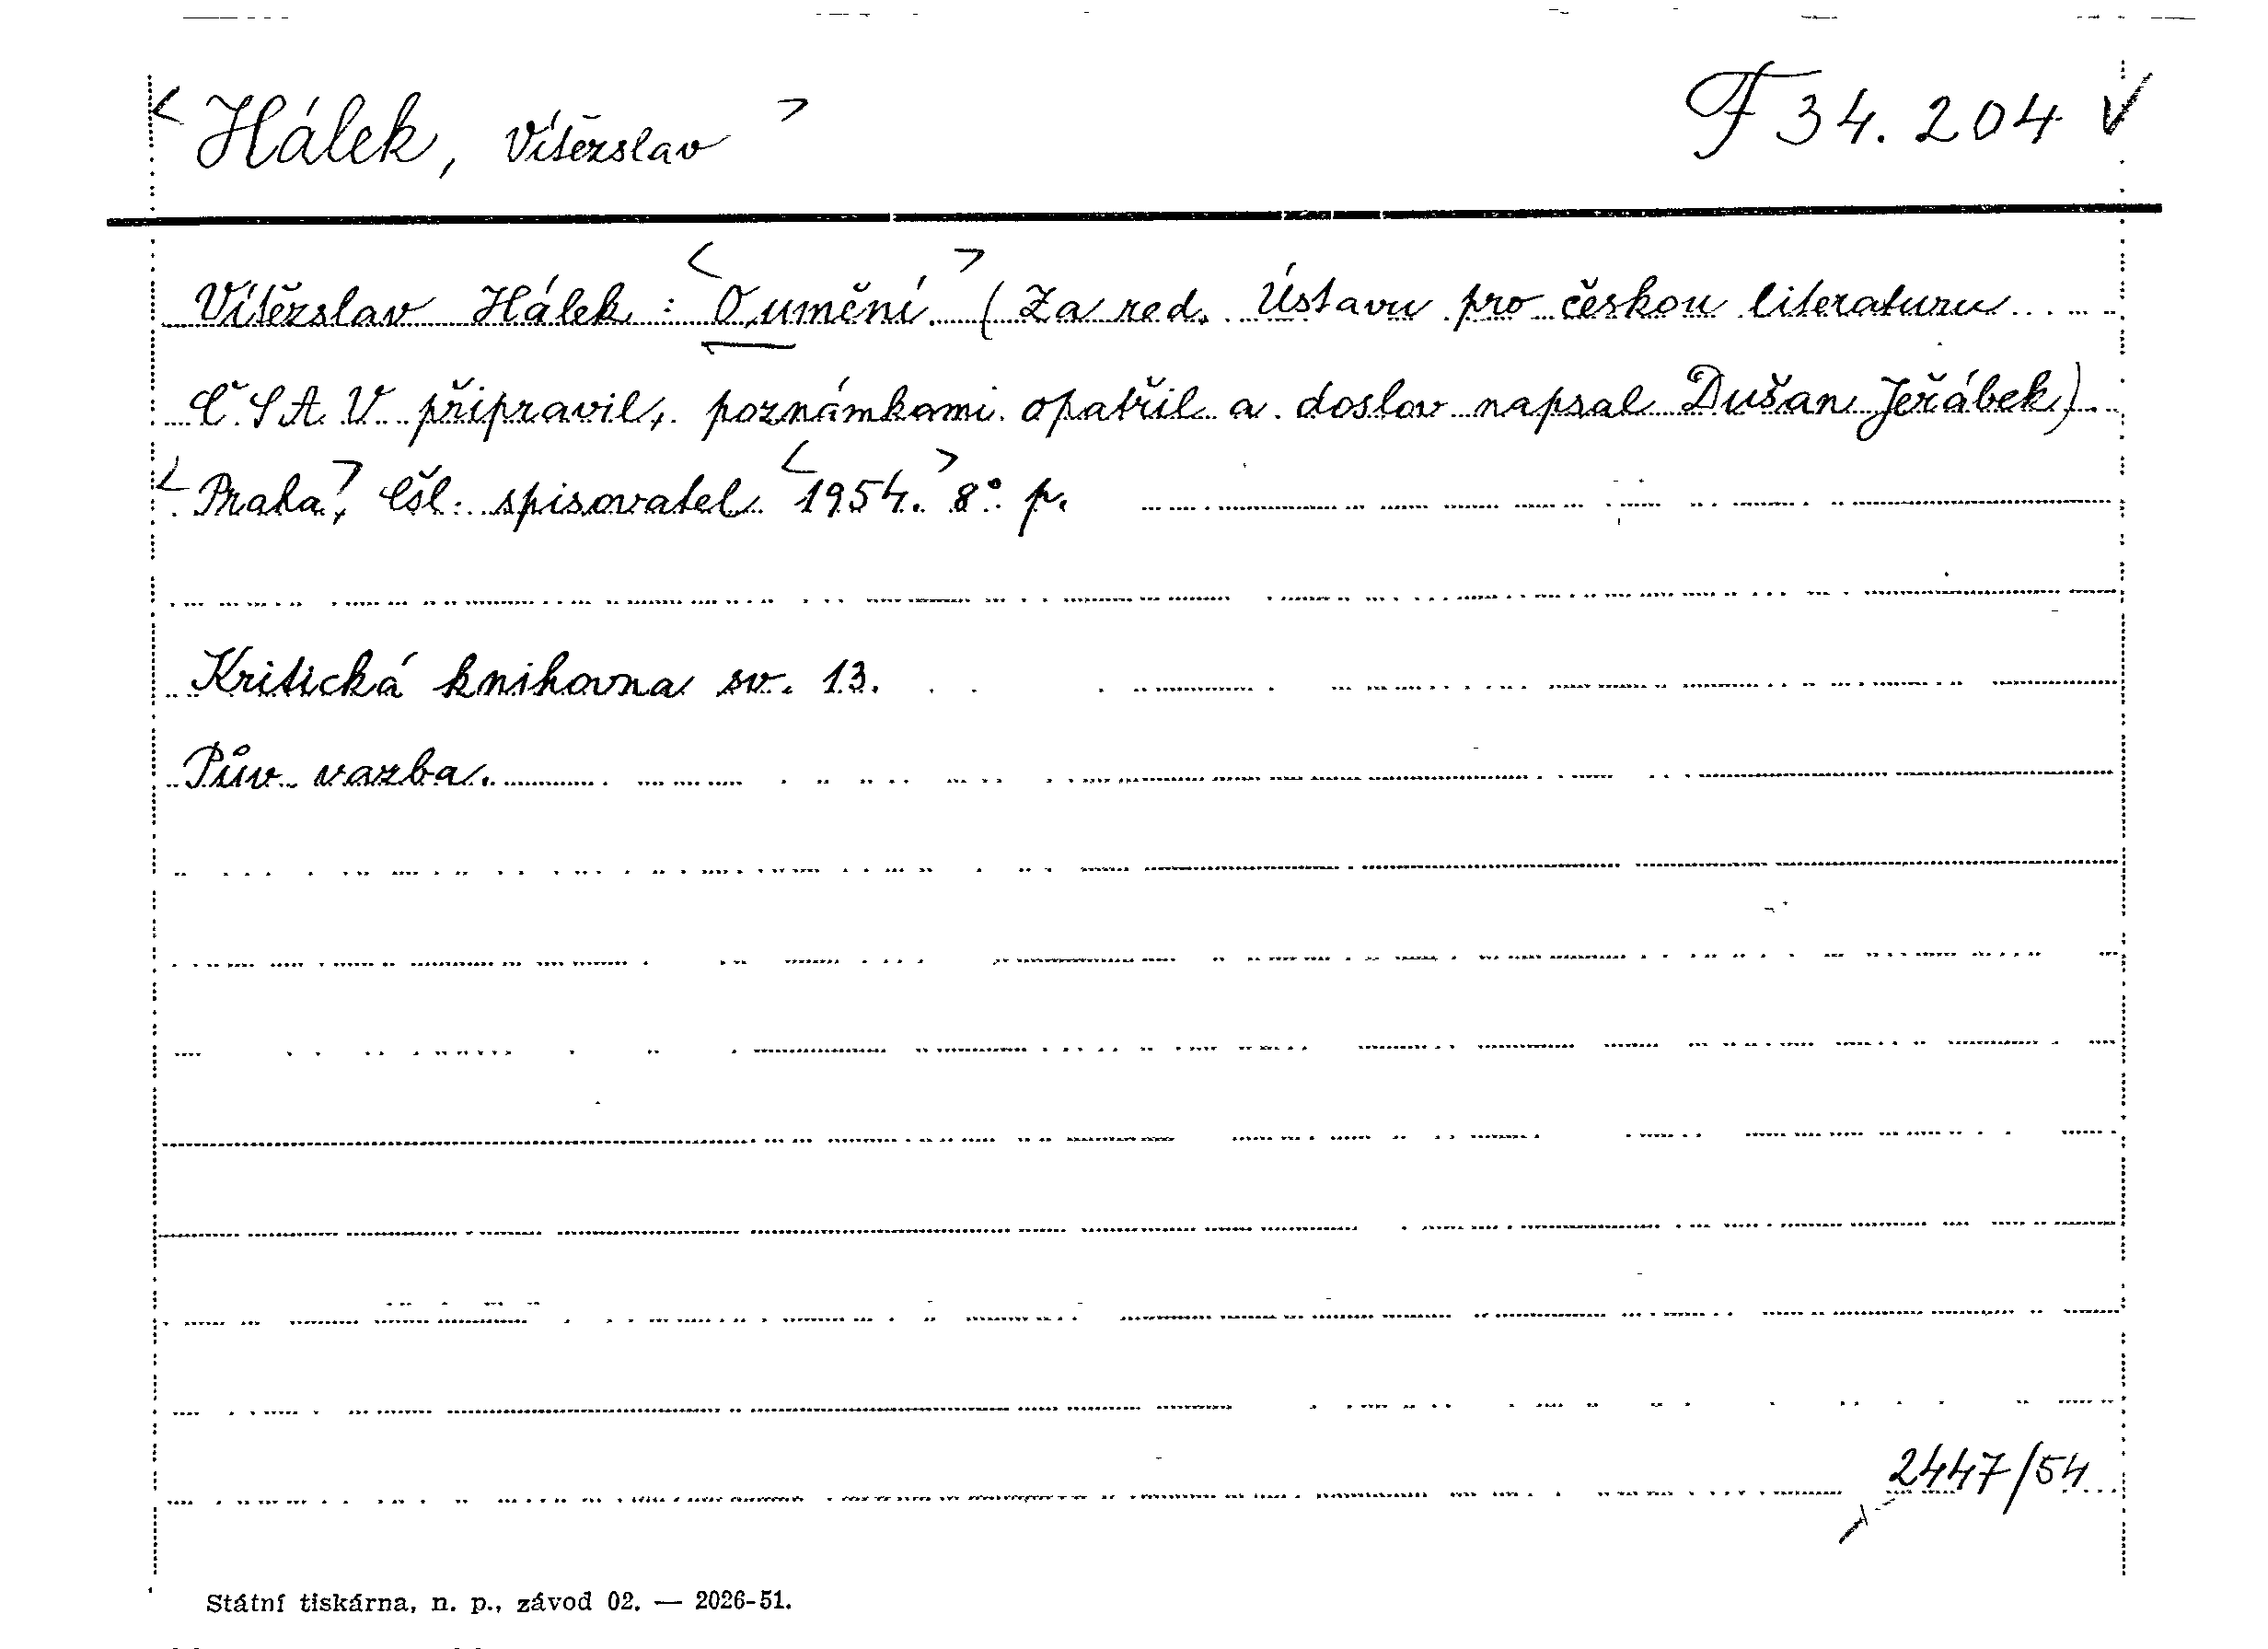 < Hálek, Vítězslav > F 34.204 √
Vítězslav Hálek : <O umění.> (Za red. Ústavu pro českou literaturu
ČSAV připravil, poznámkami opatřil a doslov napsal Dušan Jeřábek).
<Praha>, Čsl. spisovatel <1954.> 8° p.
Kritická knihovna sv. 13.
Pův. vazba.
2447/54
Státní tiskárna, n. p., závod 02. — 2026-51.